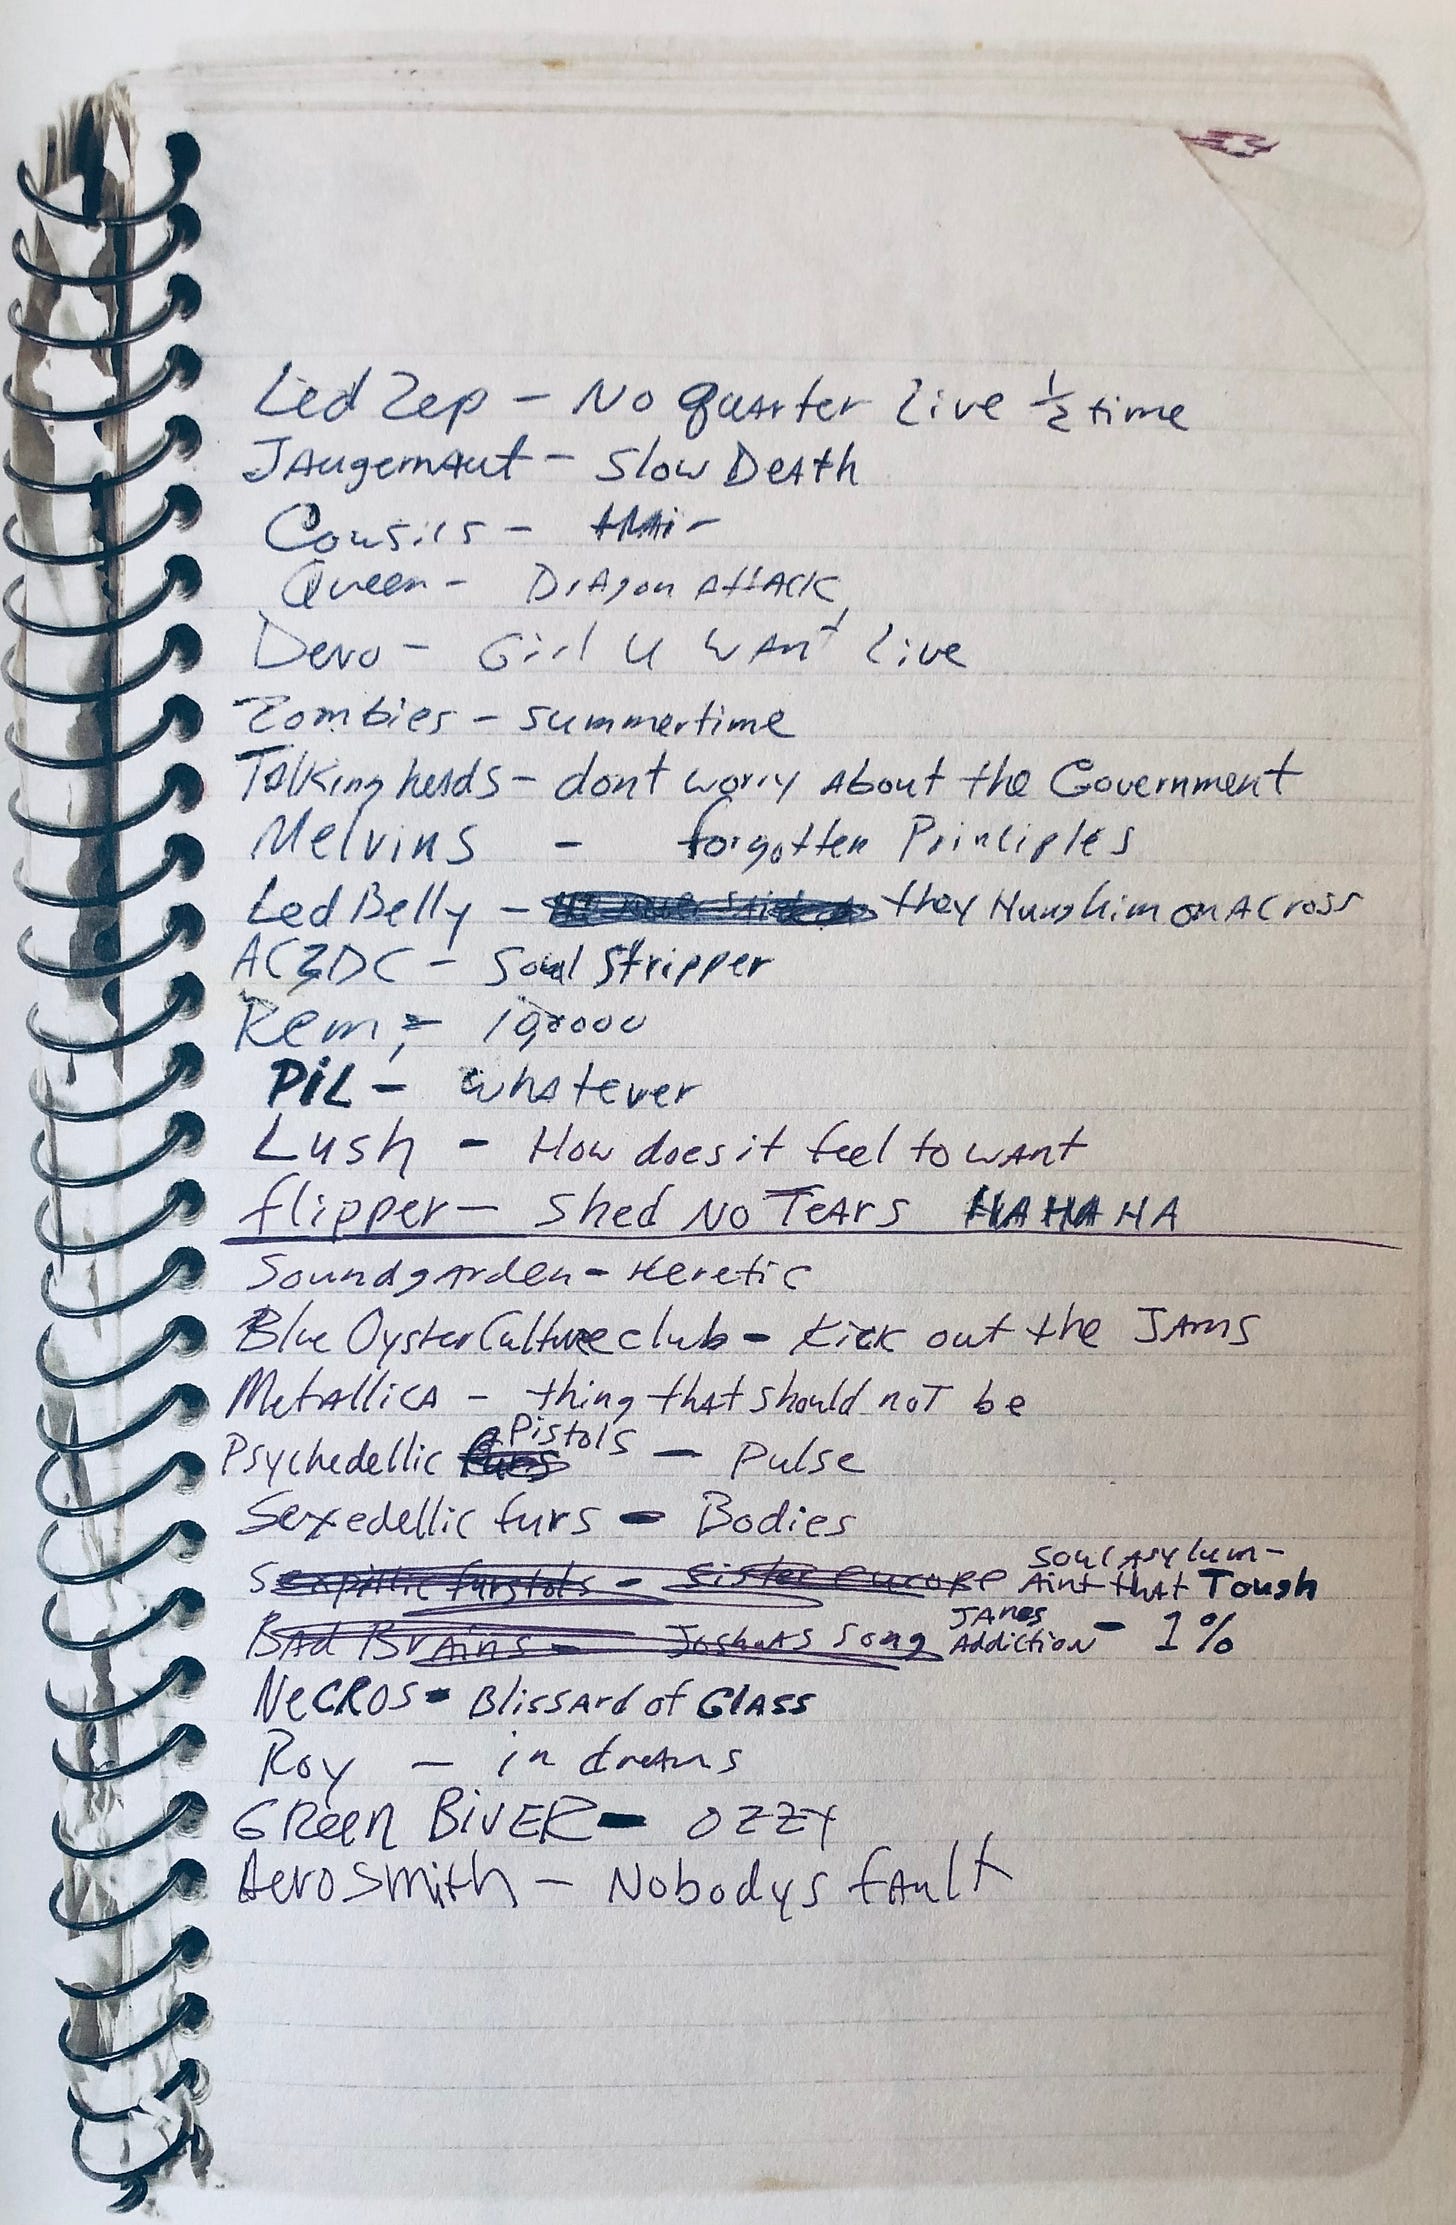 Led Zep - No Quarter Live ½ time
JAugernAut - Slow DeAth
Cowsils - HAir
Queen - DrAgon AttAck
Devo - Girl U WAnt Live
Zombies - summertime
TAlking heAds - dont worry About the Government
Melvins - forgotten Principles
Led Belly - they Hung him on A Cross
AC/DC - Soul Stripper
Rem - 10,000
PiL - whAtever
Lush - How does it feel to wAnt
flipper - Shed No TeArs HAHAHA
SoundgArden - Heretic
Blue Oyster Culture club - Kick out the JAms
MetAllicA - thing thAt should noT be
Psychedellic furs Pistols - Pulse
Sexedellic furs - Bodies
Sexpillic furstols - Sister europe Soul Asylum - Aint thAt Tough
BAd BrAins - JoshuAs Song JAnes Addiction - 1%
NeCROS - BlissArd of GlAss
Roy - in dreAms
GReen BiVER - OZZY
AeroSmith - Nobodys fAult